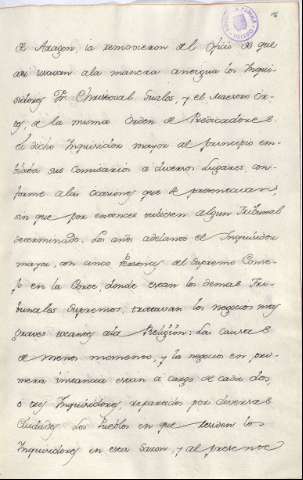 de Aragon, ia removieron del Oficio de que
usaban ala manera antigua los Inqui-
sidores Fr. Christoual Gualves, y el Maestro Or-
tes, de la misma Orden de Predicadores
el dicho Inquisidor mayor al principio em-
biaba sus Comisarios a diversos Lugares, con-
forme a las ocasiones que se presentavan,
sin que por entonces tubiesen algun Tribunal
determinado. Los años adelante el Inquisidor
mayor, con cinco Personas del Supremo Conse-
jo en la Corte, donde estan los demas Tri-
bunales Supremos, tratavan los negocios mas
graves tocantes ala Religion: Las causas
de menos momento, y los negocios en pri-
mera instancia estan a cargo de cada dos,
o tres Inquisidores, repartidos por diversas
Ciudades. Los Pueblos en que residen los
Inquisidores en esta sazon, y al presente